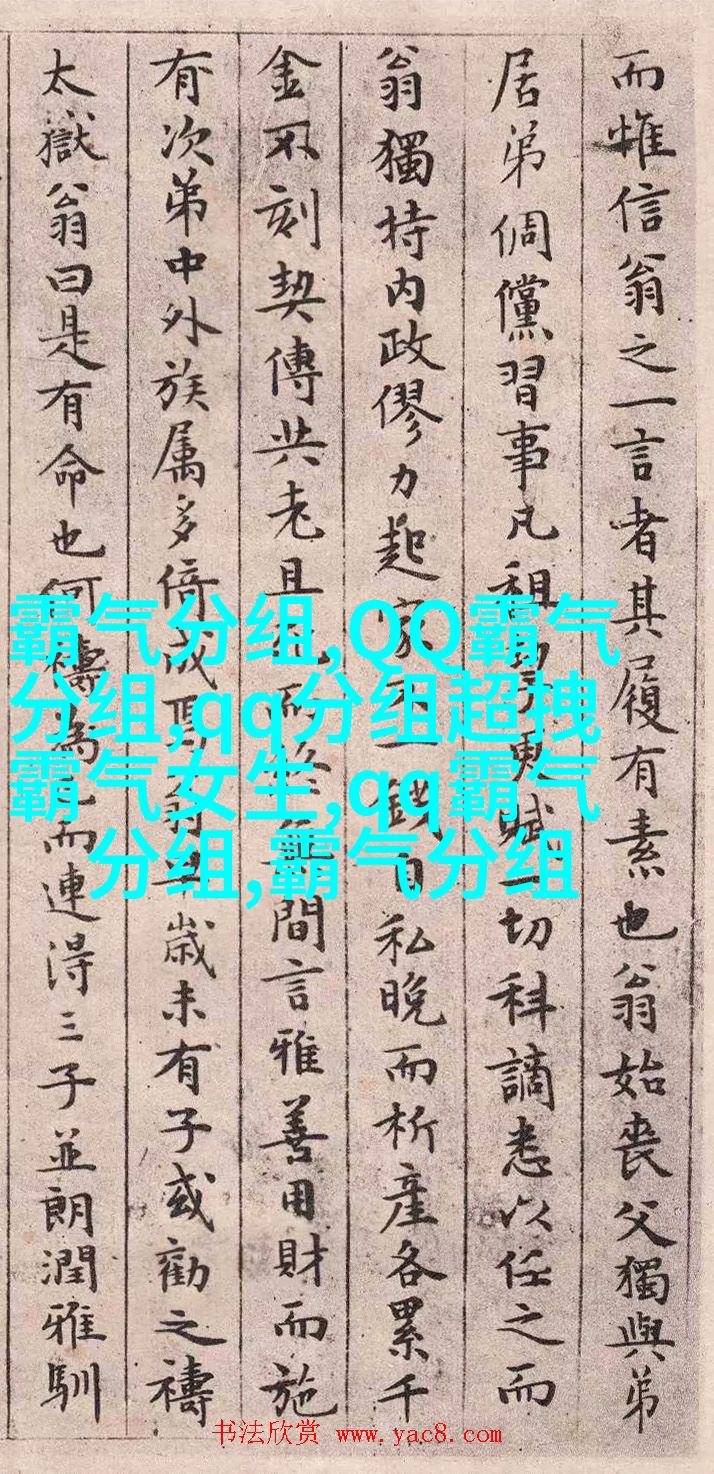 而惟信翁之一言者其履有素也翁始丧父獨與弟
居弟倜儻習事凡租更賦一切科謫悉以任之而
翁獨持内政僇力起家不一錢自私晚而析產各累千
金不刻契傳共老且而終無間言雅善用財而施
有次弟中外族属多倚成焉翁早歲未有子或勸之禱
太嶽翁曰是有命也何禱為已而連得三子並朗潤雅馴
霸气分组,QQ霸气
分组,qq分组超拽
霸气女生,qq霸气
分组,霸气分组
书法欣赏 www.yac8.com